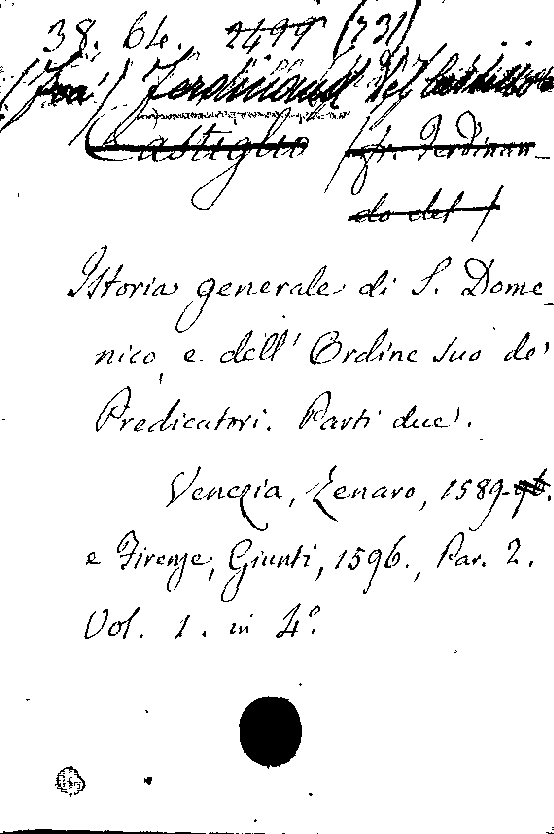 38. 64. 2499 (231)
(Fra) Ferdinando del Castiglio
Castiglio (fr. Ferdinan-
do del)
Istoria generale di S. Dome-
nico, e dell' Ordine suo de'
Predicatori. Parti due.
Venezia, Zenaro, 1589-96.
e Firenze, Giunti, 1596., Par. 2.
Vol. 1. in 4º.